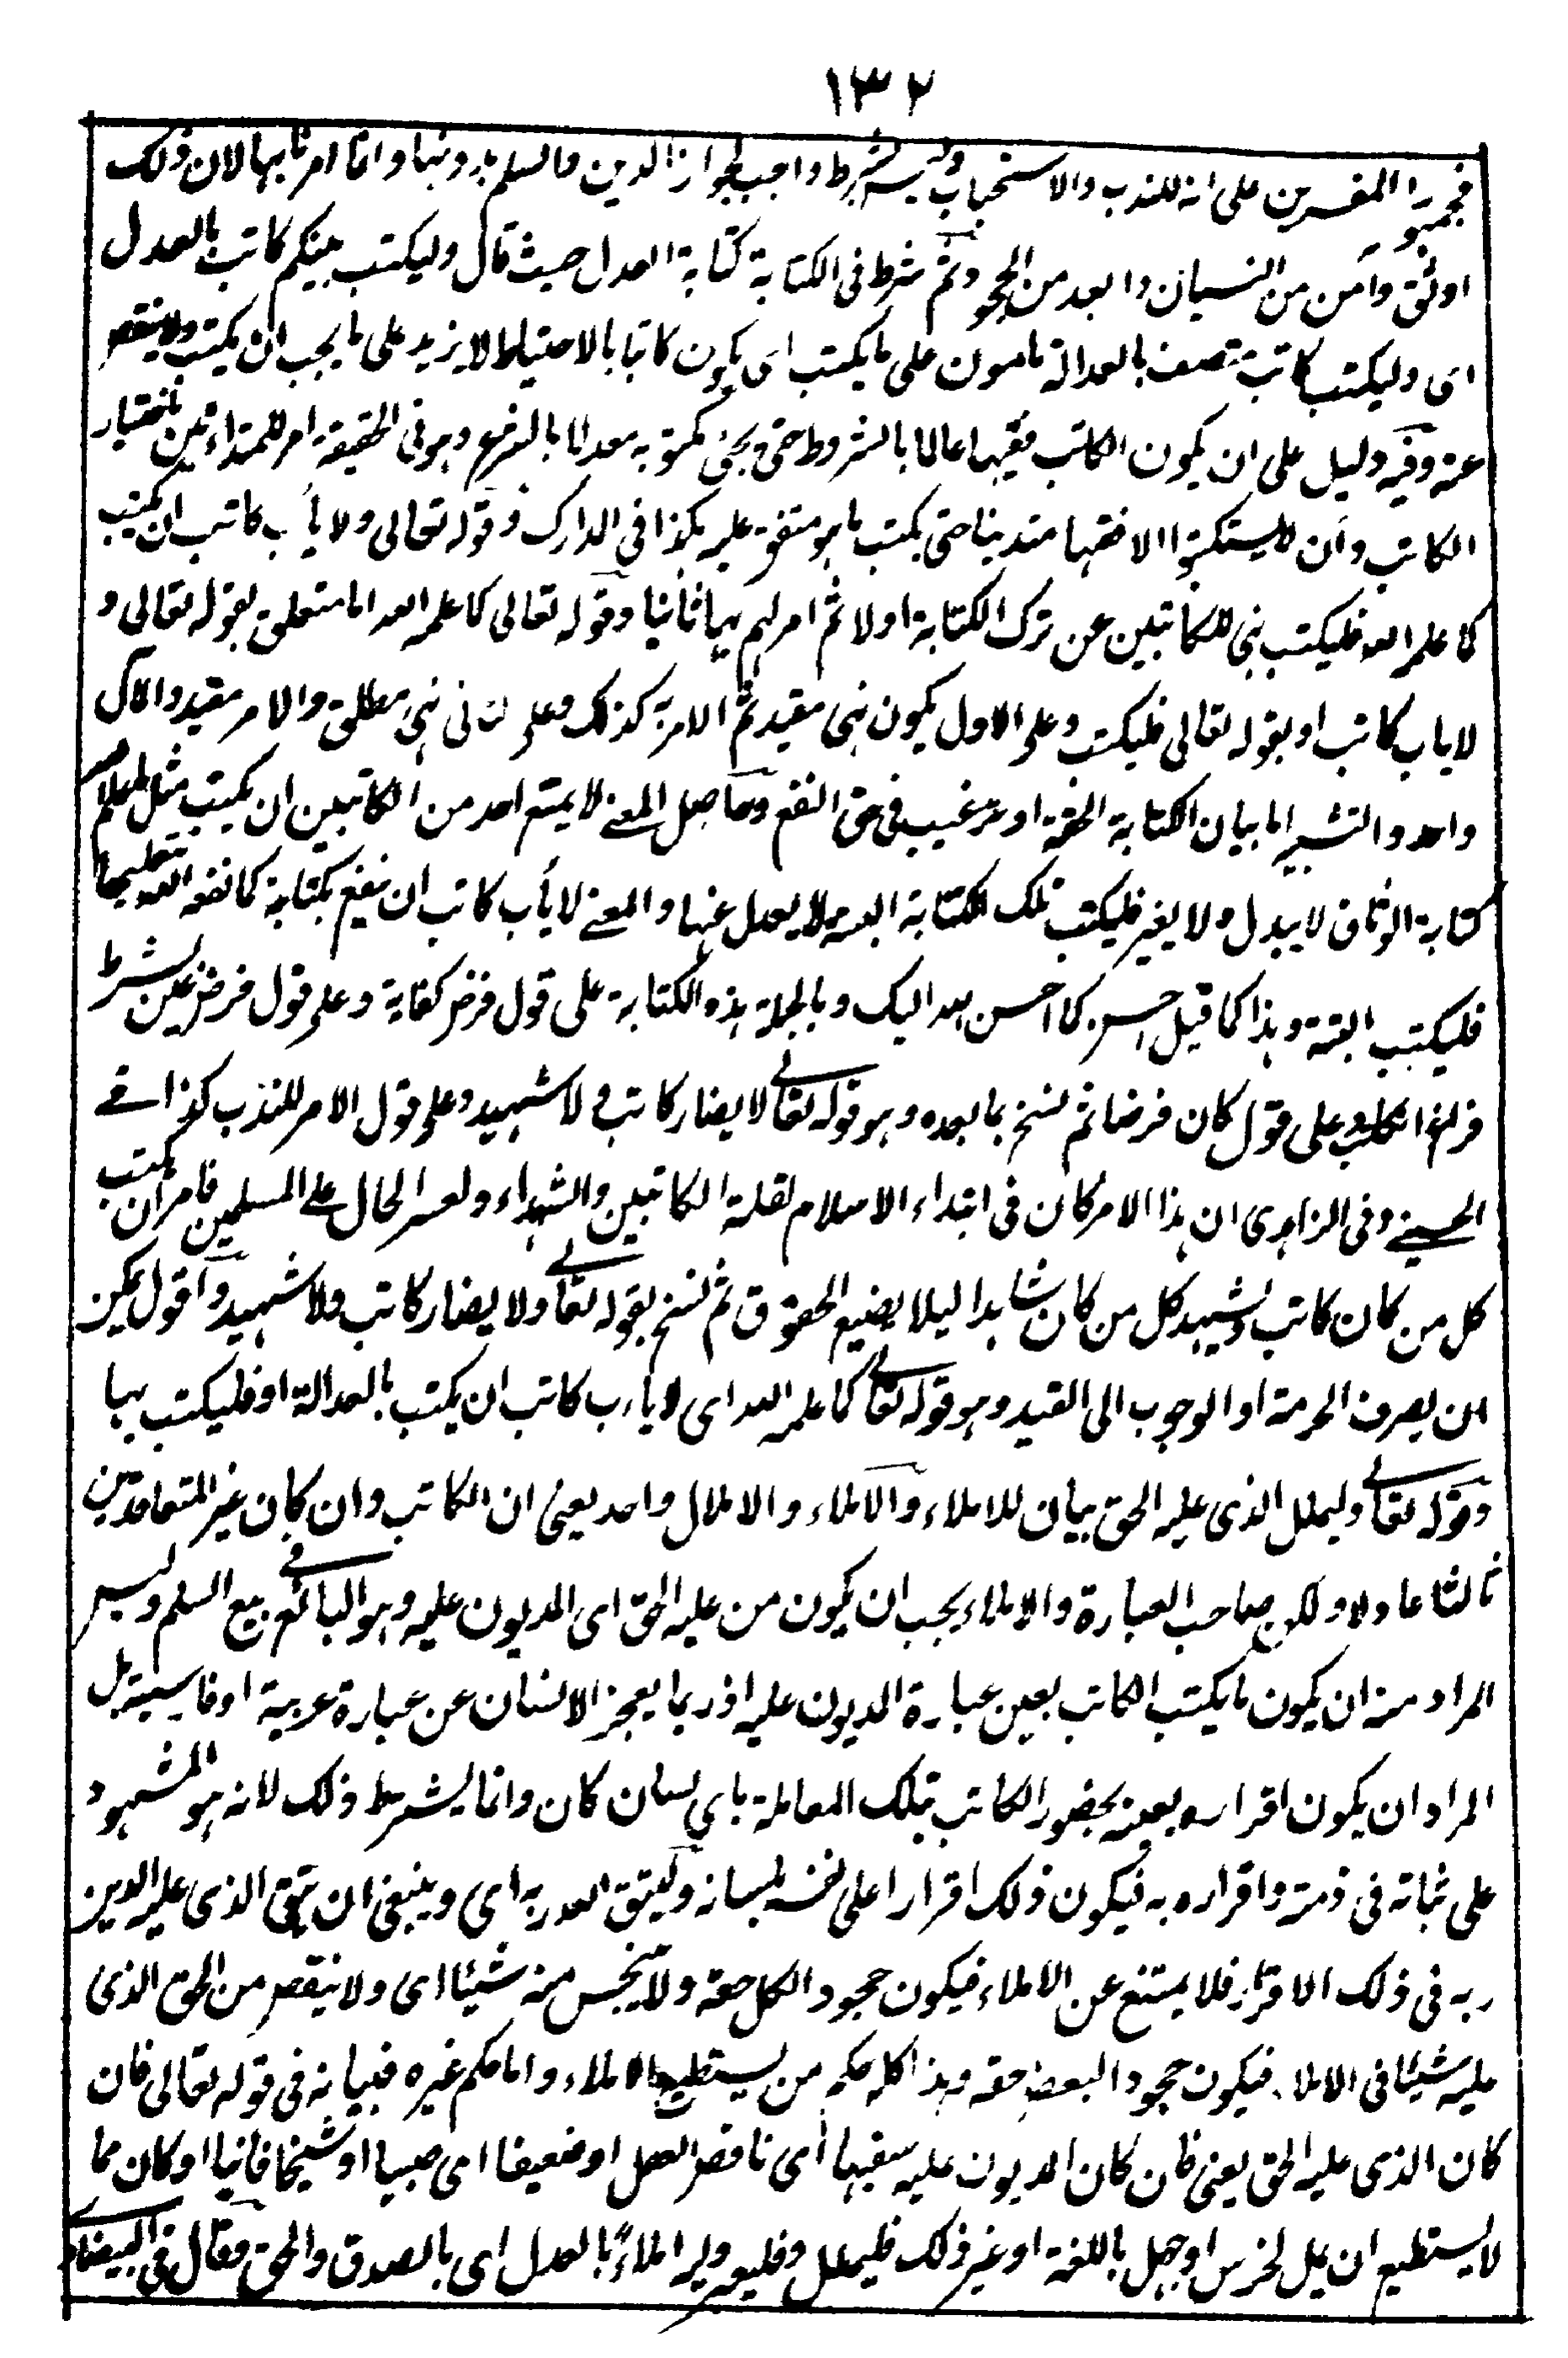 ١٣٢
فجمهور المفسرين على انه للندب والاستحباب وليس بشرط واجب لجواز الدين والسلم بدونها وانما امرنا بها لان ذلك
اوثق وآمن من النسيان وابعد من الجحود ثم شرط فى الكتابة كتابة العدل حيث قال وليكتب بينكم كاتب بالعدل
اى وليكتب كاتب متصف بالعدالة مامون على ما يكتب اى يكون كاتبا بالاحتياط لا يزيد على ما يجب ان يكتب ولا ينقص
عنه وفيه دليل على ان يكون الكاتب فقيها عالما بالشروط حتى يجئ مكتوبه معدلا بالشرع وهو فى الحقيقة امر للمتداينين بتخيار
الكاتب وان لا يستكتبوا الا فقيها متدينا حتى يكتب ما هو متفق عليه هكذا فى المدارك وقوله تعالى ولا يأب كاتب ان يكتب
كما علمه الله فليكتب نهى للكاتبين عن ترك الكتابة اولا ثم امر لهم بها ثانيا وقوله تعالى كما علمه الله اما متعلق بقوله تعالى و
لا ياب كاتب او بقوله تعالى فليكتب وعلى الاول يكون نهى مقيد ثم الامر به كذلك وعلى الثانى نهى مطلق والامر مقيد والمآل
واحد والتشبيه اما بيان الكتابة الحقة او ترغيب فى حق النفع وحاصل المعنے لا يمتنع احد من الكاتبين ان يكتب مثل ما علمه الله
كتابة الوثائق لا يبدل ولا يغير فليكتب تلك الكتابة البتة ولا يعدل عنها والمعنے لا يأب كاتب ان ينفع بكتابة كما نفعه الله بتعليمها
فليكتب البتة وهذا كما قيل احسن كما احسن الله اليك وبالجملة هذه الكتابة على قول فرض كفاية وعلى قول فرض عين بشرط
فراغ الكاتب وعلى قول كان فرضا ثم نسخ بما بعده وهو قوله تعالے لا يضار كاتب ولا شهيد وعلى قول الامر للندب كذا فے
الحسينے وفى الزاهدى ان هذا الامر كان فى ابتداء الاسلام لقلة الكاتبين والشهداء ولعسر الحال على المسلمين فامر ان يكتب
كل من كان كاتب ويشهد كل من كان شاهدا ليلا يضيع الحقوق ثم نسخ بقوله تعالے ولا يضار كاتب ولا شهيد واقول يمكن
ان يصرف الحرمة او الوجوب الى القيد وهو قوله تعالے كما علمه الله اى لا ياب كاتب ان يكتب بالعدالة او فليكتب بها
وقوله تعالے وليملل الذى عليه الحق بيان للاملاء والاملاء والاملال واحد يعنى ان الكاتب وان كان غير المتعاقدين
ثالثا عادلا ولكن صاحب العبارة والاملاء يجب ان يكون من عليه الحق اى المديون عليه وهو البائع فے بيع السلم وليس
المراد منه ان يكون ما يكتب الكاتب بعين عبارة المديون عليه اذ ربما يعجز الانسان عن عبارة عربية او فارسية بل
المراد ان يكون اقراره بعينه بحضور الكاتب بتلك المعاملة باى لسان كان وانما يشترط ذلك لانه هو المشهود
على ثباته فى ذمته واقراره به فيكون ذلك اقرارا على نفسه بلسانه وليتق الله ربه اى وينبغى ان يتقى الذى عليه الدين
ربه فى ذلك الاقرار فلا يمتنع عن الاملاء فيكون جحود الكل حقه ولا يبخس منه شيئا اى ولا ينقص من الحق الذى
عليه شيئا فى الاملاء فيكون جحود البعض حقه وهذا كله حكم من يستطيع الاملاء واما حكم غيره فبيانه فى قوله تعالى فان
كان الذى عليه الحق يعنى فان كان المديون عليه سفيها اى ناقص العقل او ضعيفا اى صبيا او شيخا فانيا او كان مما
لا يستطيع ان يمل لخرس او جهل باللغة او غير ذلك فليملل وليه املاء بالعدل اى بالصدق والحق وقال فى البيضاوى